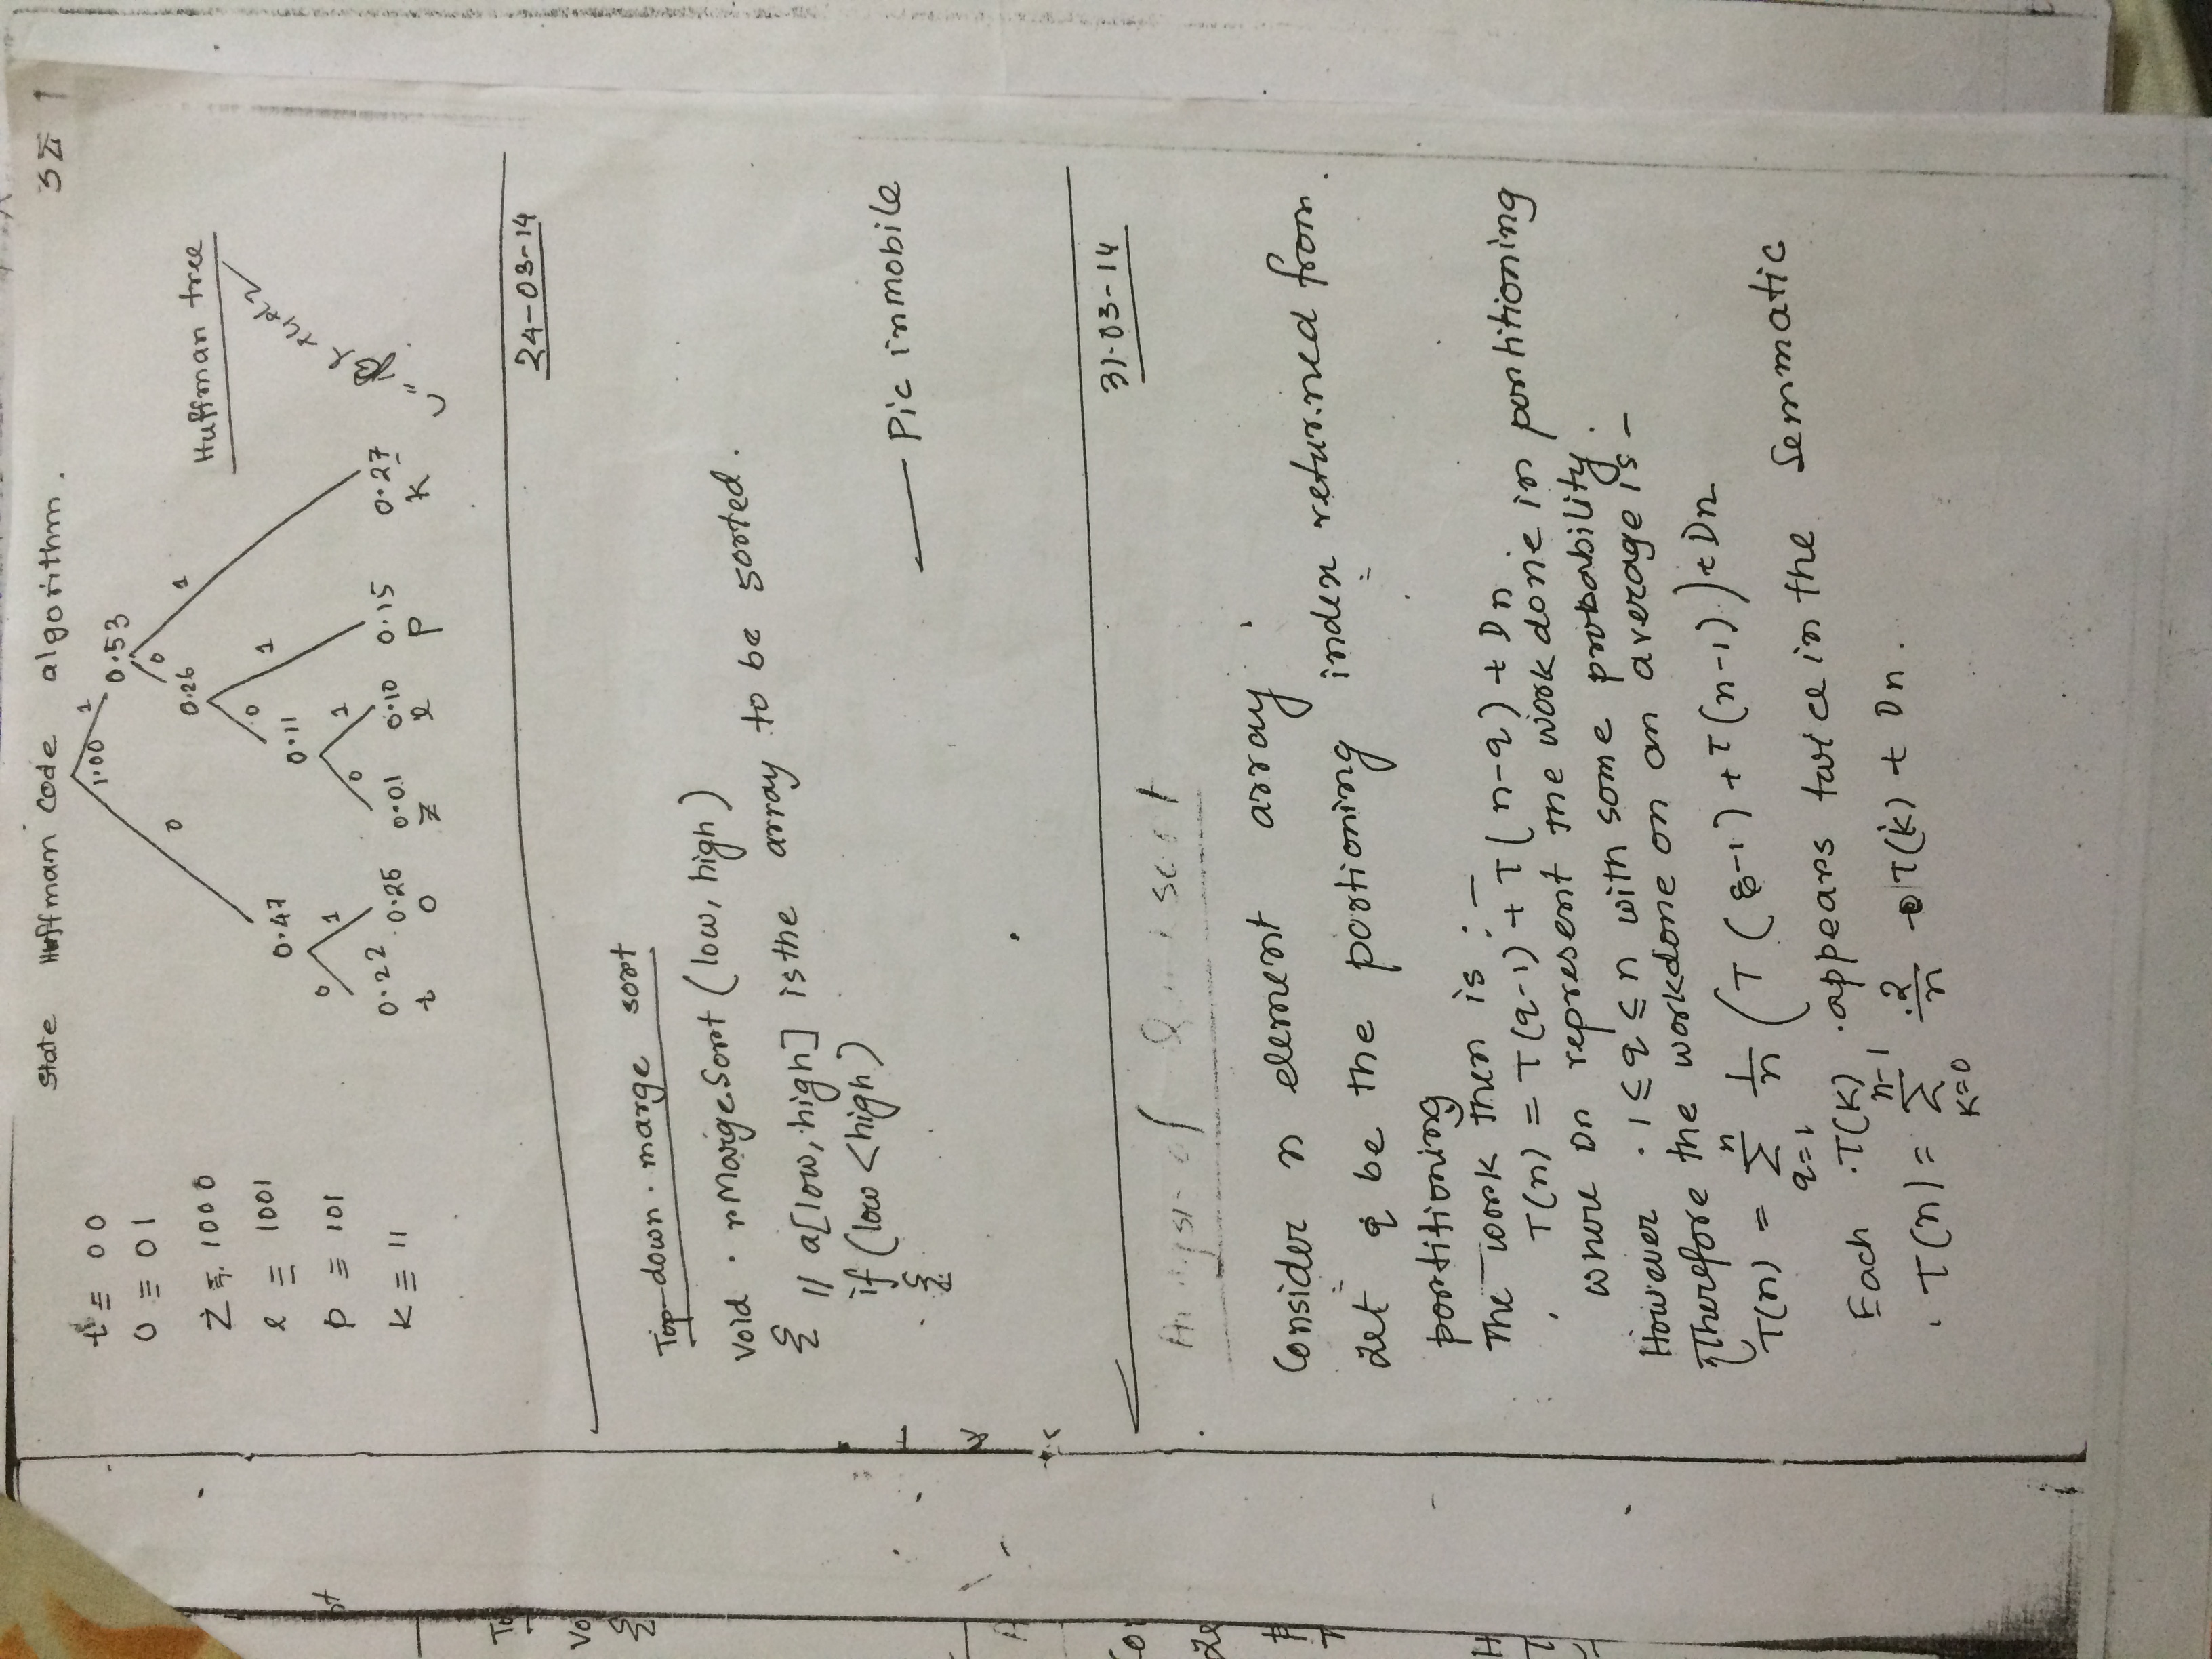 State Huffman Code algorithm.
t ≡ 00
o ≡ 01
z ≡ 1000
l ≡ 1001
p ≡ 101
k ≡ 11
1.00 1
0.53
0 0 1
0.26
Huffman tree
0 1
0.47 0.11
0 1 0 1
0.22 0.25 0.01 0.10 0.15 0.27
t o z l p k
24-03-14
Top-down marge sort
void rMargeSort (low, high)
{ // a[low, high] is the array to be sorted.
if (low < high)
{
Pic in mobile
31-03-14
of sort
Consider n element array
Let q be the portioning index returned from
partitioning
The work then is :-
T(n) = T(q-1) + T(n-q) + Dn
where Dn represent the work done in partitioning
However 1 ≤ q ≤ n with some probability.
Therefore the workdone on an average is -
T(n) = n Σ q=1 1/n (T(q-1) + T(n-1)) + Dn
Each T(k) appears twice in the Semmatic
T(n) = n-1 Σ k=0 2/n T(k) + Dn.